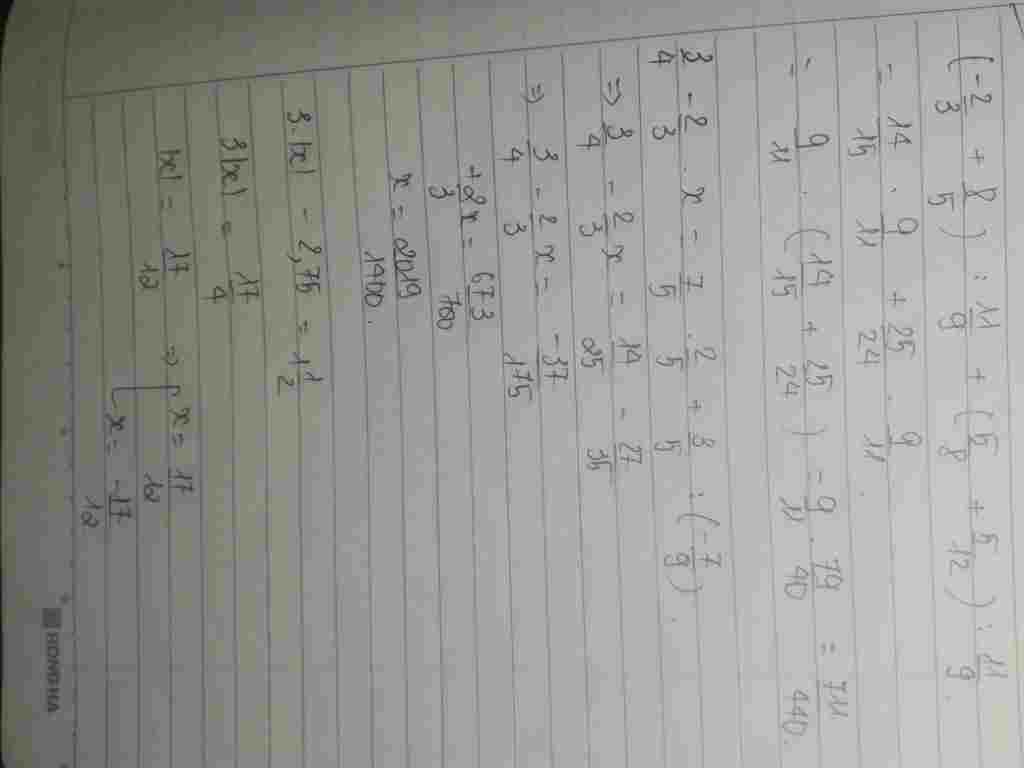 (-2/3 + 8/5) : 11/9 + (5/8 + 5/12) : 11/9.
= 14/15 . 9/11 + 25/24 . 9/11.
= 9/11 . (14/15 + 25/24) = 9/11 . 79/40 = 711/440.
3/4 - 2/3 . x = 7/5 . 2/5 + 8/5 : (-7/9).
=> 3/4 - 2/3 x = 14/25 - 27/35
=> 3/4 - 2/3 x = -37/175
+2/3 x = 673/700
x = 2019/1400.
3.|x| - 2,75 = 1 1/2
3|x| = 17/4
|x| = 17/12 => [ x = 17/12
x = -17/12
HONGHA